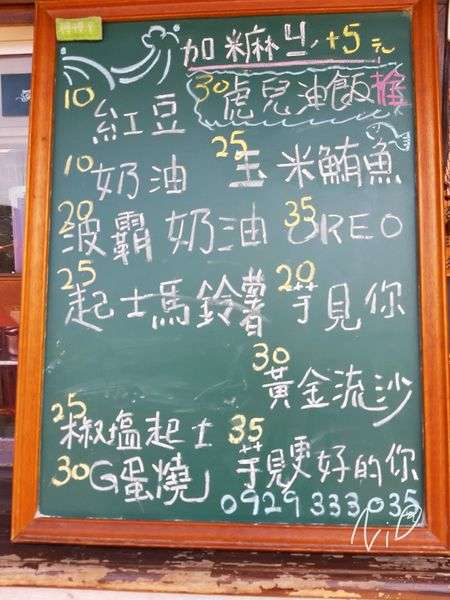 加米麻丩 +5元
30 虎兒油飯 推
10 紅豆
10 奶油
25 玉米鮪魚
20 波霸奶油
35 OREO
25 起士馬鈴薯
20 芋見你
30 黃金流沙
25 椒塩起士
35 芋見更好的你
30 G蛋燒
0929 333 035